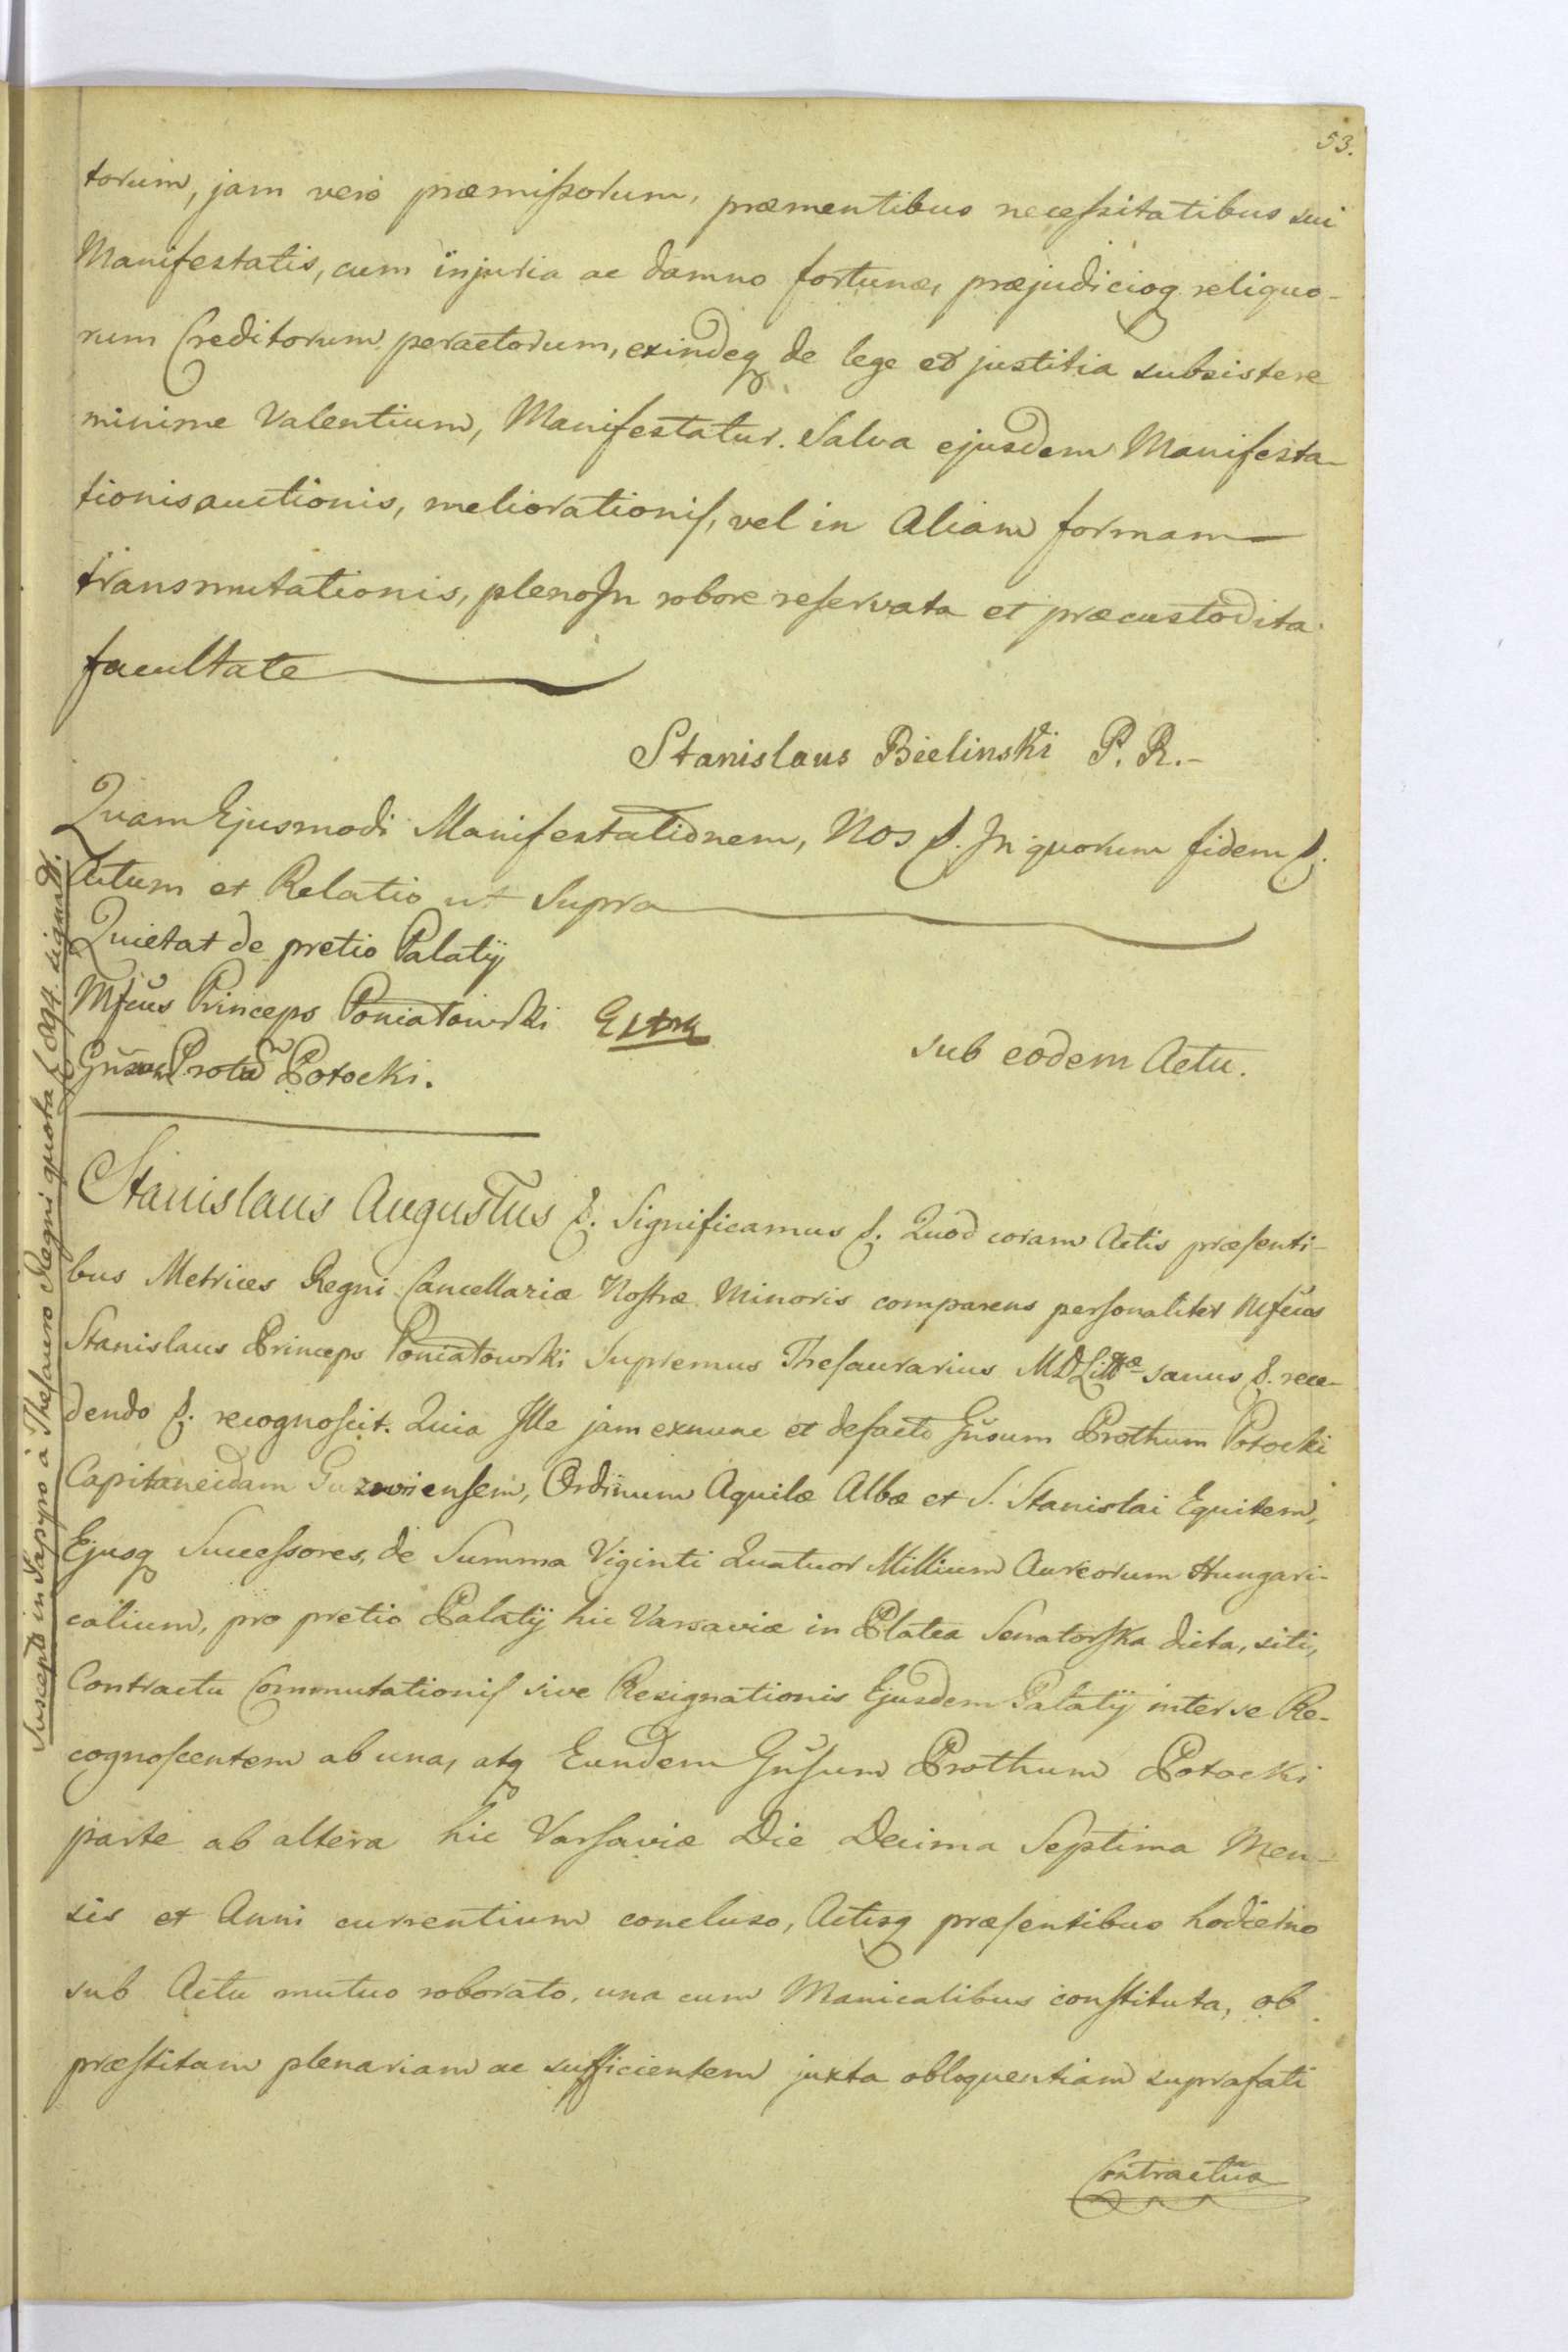 53.
torum, jam vero præmissorum, præmentibus necessitatibus sui
Manifestatis, cum injuria ac damno fortunæ, præjudicioq reliquo-
rum Creditorum peractorum, exindeq de lege et justitia subsistere
minime Valentium, Manifestatur. Salva ejusdem Manifesta-
tionis auctionis, meliorationis, vel in Aliam formam
transmutationis, pleno In robore reservata et præcustodita
facultate
Stanislaus Bielinski P. R.-
Quam Ejusmodi Manifestationem, Nos &. In quorum fidem &.
Actum et Relatio ut Supra
Quietat de pretio Palatij
Mfcus Princeps Poniatowski Extr
Gnsum Protum Potocki.
sub eodem Actu.
Stanislaus Augustus &. Significamus &. Quod coram Actis præsenti-
bus Metrices Regni Cancellariæ Nostræ Minoris comparens personaliter Mfcus
Stanislaus Princeps Poniatowski Supremus Thesaurarius MDLittæ sanus &. rece-
dendo &. recognoscit. Quia Ille jam exnunc et defacto Gnsum Prothum Potocki
Capitaneidam Guzoviensem, Ordinum Aquilæ Albæ et S. Stanislai Equitem,
Ejusq Successores, de Summa Viginti Quatuor Millium Aureorum Hungari-
calium, pro pretio Palatij hic Varsaviæ in Platea Senatorska dicta, siti,
Contractu Commutationis sive Resignationis Ejusdem Palatij inter se Re-
cognoscentem ab una, atq Eundem Gnsum Prothum Potocki
parte ab altera hic Varsaviæ Die Decima Septima Men-
sis et Anni currentium concluso, Actisq præsentibus hodierno
sub Actu mutuo roborato, una cum Manicalibus constituta, ob
præstitam plenariam ac sufficientem juxta obloquentiam suprafati
Contractus
Suscepta in Papyro à Thesauro Regni quota f. signatt.